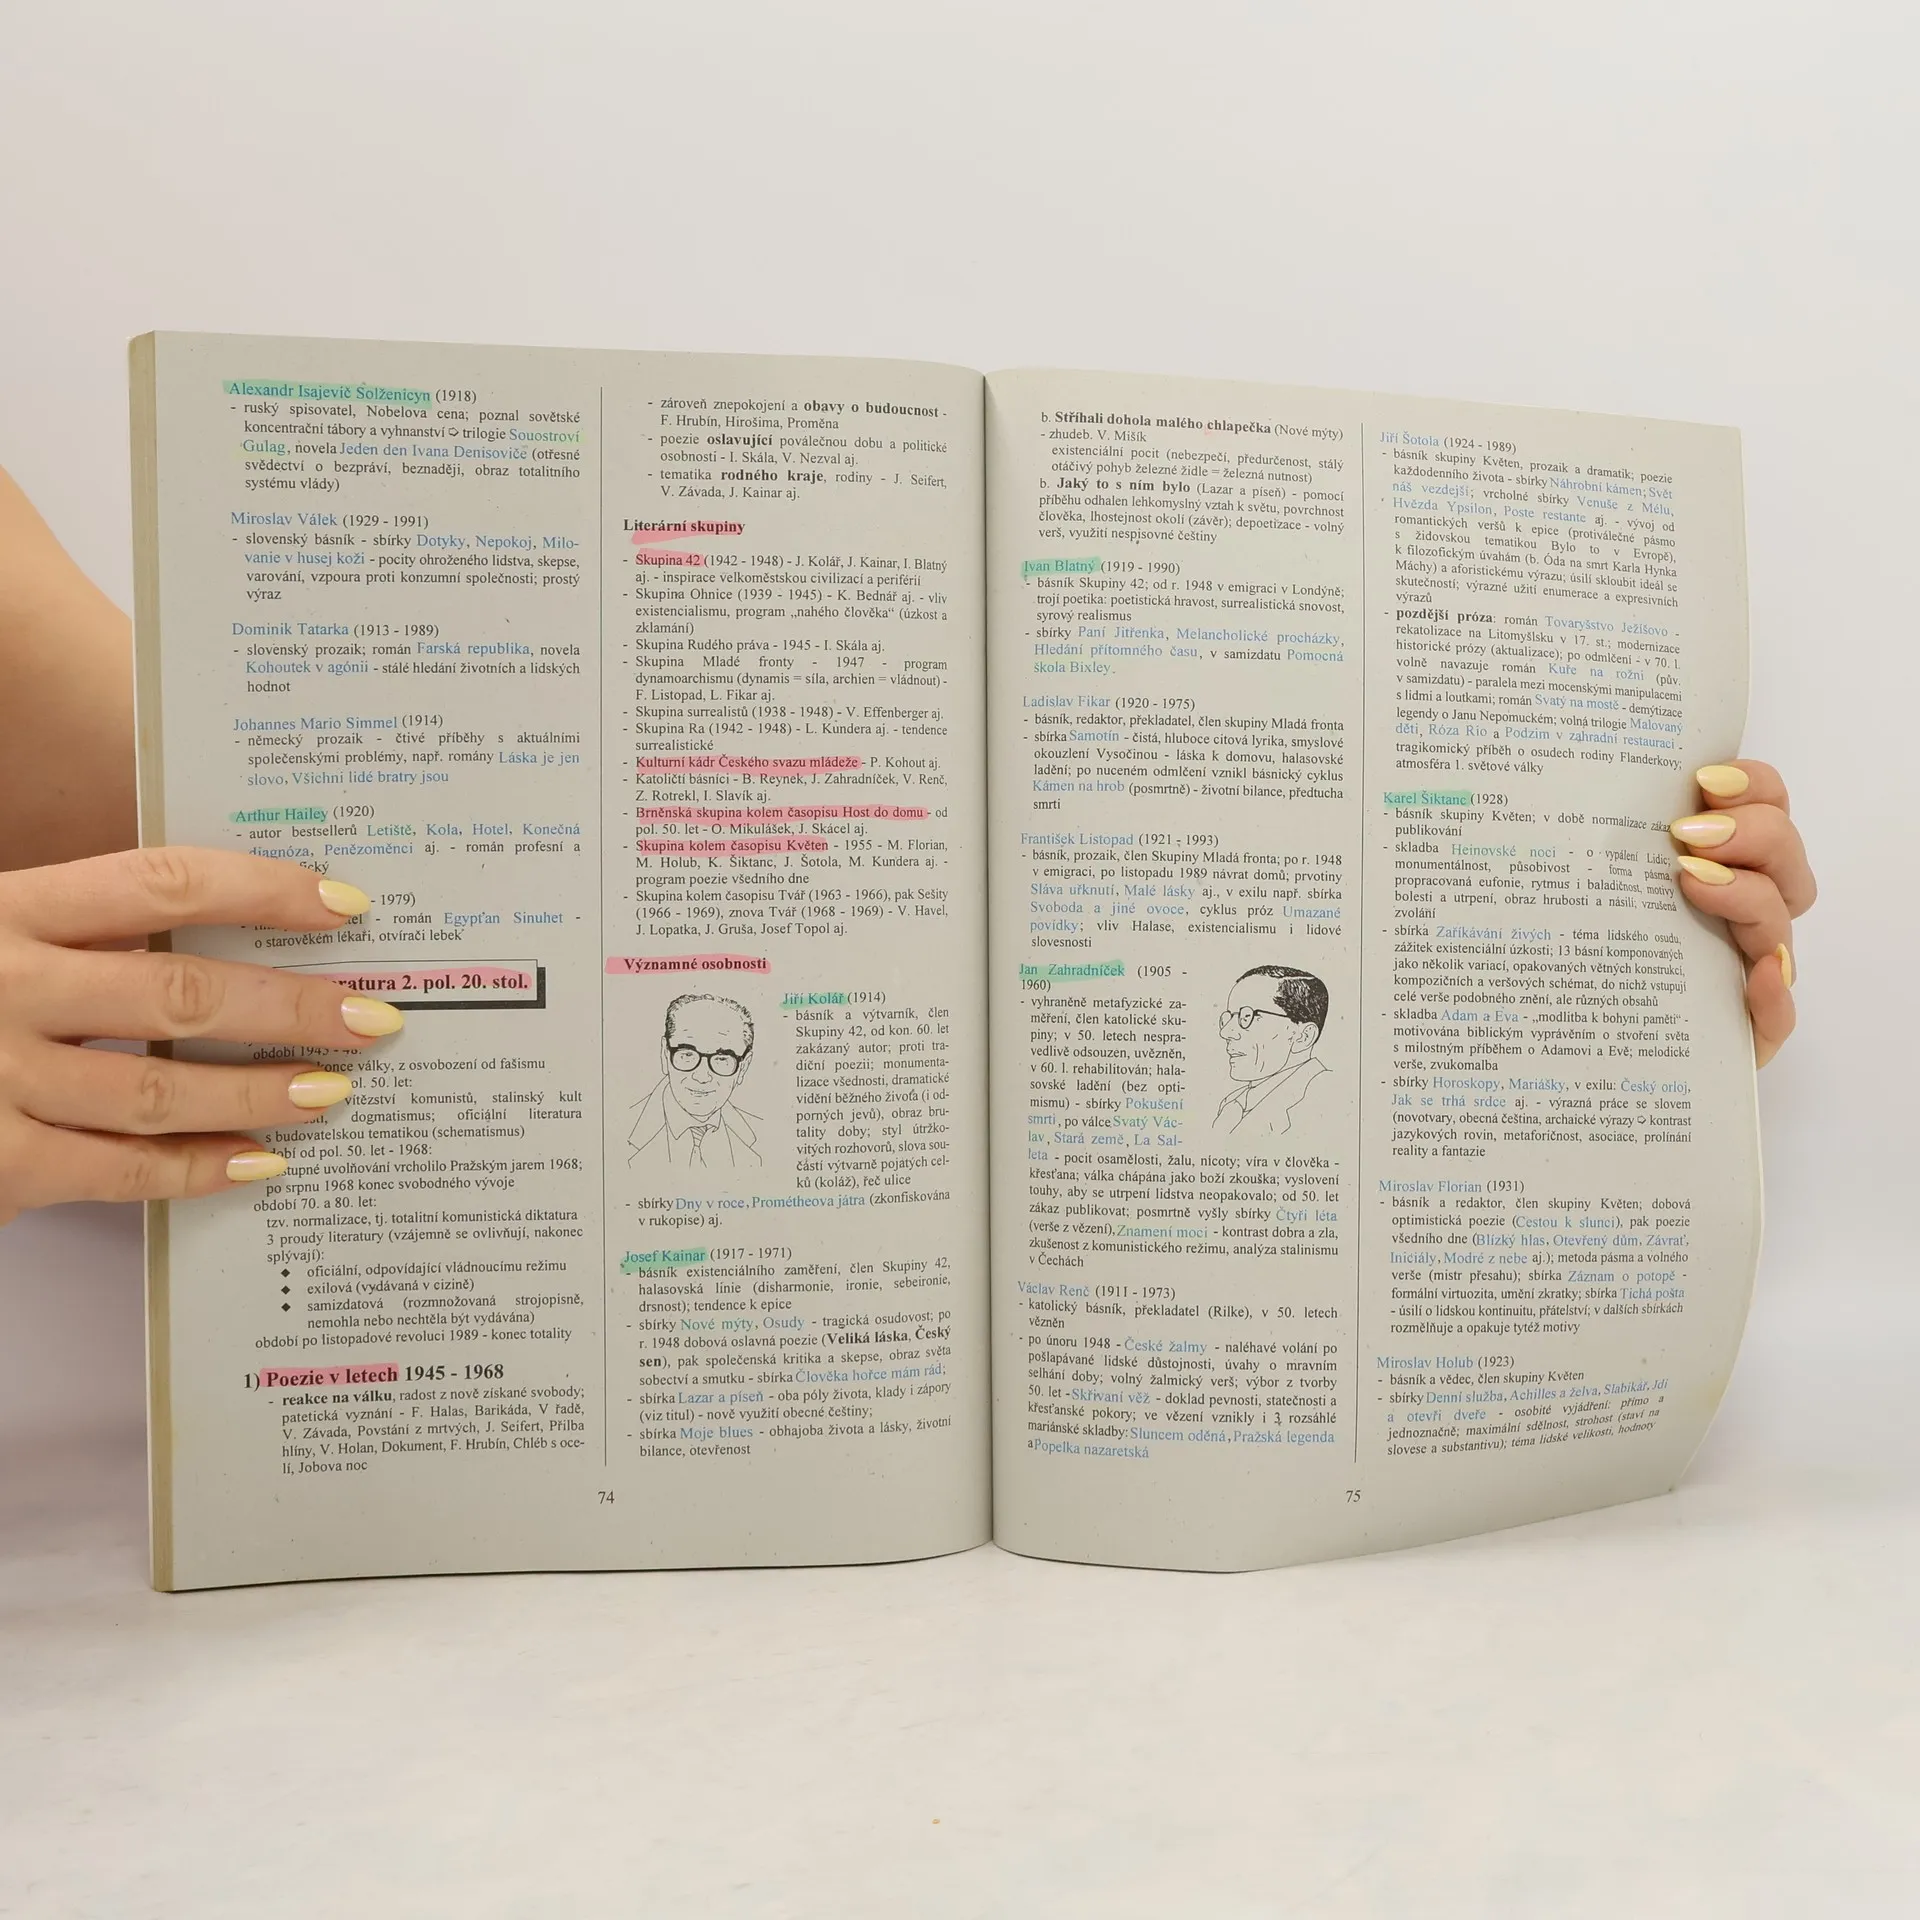 Alexandr Isajevič Solženicyn (1918)
- ruský spisovatel, Nobelova cena; poznal sovětské
koncentrační tábory a vyhnanství ➪ trilogie Souostroví
Gulag, novela Jeden den Ivana Denisoviče (otřesné
svědectví o bezpráví, beznaději, obraz totalitního
systému vlády)
Miroslav Válek (1929 - 1991)
- slovenský básník - sbírky Dotyky, Nepokoj, Milo-
vanie v husej koži - pocity ohroženého lidstva, skepse,
varování, vzpoura proti konzumní společnosti; prostý
výraz
Dominik Tatarka (1913 - 1989)
- slovenský prozaik; román Farská republika, novela
Kohoutek v agónii - stálé hledání životních a lidských
hodnot
Johannes Mario Simmel (1914)
- německý prozaik - čtivé příběhy s aktuálními
společenskými problémy, např. romány Láska je jen
slovo, Všichni lidé bratry jsou
Arthur Hailey (1920)
- autor bestsellerů Letiště, Kola, Hotel, Konečná
diagnóza, Penězoměnci aj. - román profesní a
- 1979)
- román Egypťan Sinuhet -
o starověkém lékaři, otvírači lebek
2. pol. 20. stol.
období 1945 - 48:
konce války, z osvobození od fašismu
pol. 50. let:
vítězství komunistů, stalinský kult
dogmatismus; oficiální literatura
s budovatelskou tematikou (schematismus)
od pol. 50. let - 1968:
uvolňování vrcholilo Pražským jarem 1968;
po srpnu 1968 konec svobodného vývoje
období 70. a 80. let:
tzv. normalizace, tj. totalitní komunistická diktatura
3 proudy literatury (vzájemně se ovlivňují, nakonec
splývají):
◆ oficiální, odpovídající vládnoucímu režimu
◆ exilová (vydávaná v cizině)
◆ samizdatová (rozmnožovaná strojopisně,
nemohla nebo nechtěla být vydávána)
období po listopadové revoluci 1989 - konec totality
1) Poezie v letech 1945 - 1968
- reakce na válku, radost z nově získané svobody;
patetická vyznání - F. Halas, Barikáda, V řadě,
V. Závada, Povstání z mrtvých, J. Seifert, Přilba
hlíny, V. Holan, Dokument, F. Hrubín, Chléb s oce-
lí, Jobova noc
- zároveň znepokojení a obavy o budoucnost -
F. Hrubín, Hirošima, Proměna
- poezie oslavující poválečnou dobu a politické
osobnosti - I. Skála, V. Nezval aj.
- tematika rodného kraje, rodiny - J. Seifert,
V. Závada, J. Kainar aj.
Literární skupiny
- Skupina 42 (1942 - 1948) - J. Kolář, J. Kainar, I. Blatný
aj. - inspirace velkoměstskou civilizací a periférií
- Skupina Ohnice (1939 - 1945) - K. Bednář aj. - vliv
existencialismu, program „nahého člověka“ (úzkost a
zklamání)
- Skupina Rudého práva - 1945 - I. Skála aj.
- Skupina Mladé fronty - 1947 - program
dynamoarchismu (dynamis = síla, archien = vládnout) -
F. Listopad, L. Fikar aj.
- Skupina surrealistů (1938 - 1948) - V. Effenberger aj.
- Skupina Ra (1942 - 1948) - L. Kundera aj. - tendence
surrealistické
- Kulturní kádr Českého svazu mládeže - P. Kohout aj.
- Katoličtí básníci - B. Reynek, J. Zahradníček, V. Renč,
Z. Rotrekl, I. Slavík aj.
- Brněnská skupina kolem časopisu Host do domu - od
pol. 50. let - O. Mikulášek, J. Skácel aj.
- Skupina kolem časopisu Květen - 1955 - M. Florian,
M. Holub, K. Šiktanc, J. Šotola, M. Kundera aj. -
program poezie všedního dne
- Skupina kolem časopisu Tvář (1963 - 1966), pak Sešity
(1966 - 1969), znova Tvář (1968 - 1969) - V. Havel,
J. Lopatka, J. Gruša, Josef Topol aj.
Významné osobnosti
Jiří Kolář (1914)
- básník a výtvarník, člen
Skupiny 42, od kon. 60. let
zakázaný autor; proti tra-
diční poezii; monumenta-
lizace všednosti, dramatické
vidění běžného života (i od-
porných jevů), obraz bru-
tality doby; styl útržko-
vitých rozhovorů, slova sou-
částí výtvarně pojatých cel-
ků (koláž), řeč ulice
- sbírky Dny v roce, Prométheova játra (zkonfiskována
v rukopise) aj.
Josef Kainar (1917 - 1971)
- básník existenciálního zaměření, člen Skupiny 42,
halasovská linie (disharmonie, ironie, sebeironie,
drsnost); tendence k epice
- sbírky Nové mýty, Osudy - tragická osudovost; po
r. 1948 dobová oslavná poezie (Veliká láska, Český
sen), pak společenská kritika a skepse, obraz světa
sobectví a smutku - sbírka Člověka hořce mám rád;
- sbírka Lazar a píseň - oba póly života, klady i zápory
(viz titul) - nově využití obecné češtiny;
- sbírka Moje blues - obhajoba života a lásky, životní
bilance, otevřenost
74
b. Stříhali dohola malého chlapečka (Nové mýty)
- zhudeb. V. Mišík
existenciální pocit (nebezpečí, předurčenost, stálý
otáčivý pohyb železné židle = železná nutnost)
b. Jaký to s ním bylo (Lazar a píseň) - pomocí
příběhu odhalen lehkomyslný vztah k světu, povrchnost
člověka, lhostejnost okolí (závěr); depoetizace - volný
verš, využití nespisovné češtiny
Ivan Blatný (1919 - 1990)
- básník Skupiny 42; od r. 1948 v emigraci v Londýně;
trojí poetika: poetistická hravost, surrealistická snovost,
syrový realismus
- sbírky Paní Jitřenka, Melancholické procházky,
Hledání přítomného času, v samizdatu Pomocná
škola Bixley.
Ladislav Fikar (1920 - 1975)
- básník, redaktor, překladatel, člen skupiny Mladá fronta
- sbírka Samotín - čistá, hluboce citová lyrika, smyslové
okouzlení Vysočinou - láska k domovu, halasovské
ladění; po nuceném odmlčení vznikl básnický cyklus
Kámen na hrob (posmrtně) - životní bilance, předtucha
smrti
František Listopad (1921 - 1993)
- básník, prozaik, člen Skupiny Mladá fronta; po r. 1948
v emigraci, po listopadu 1989 návrat domů; prvotiny
Sláva uřknutí, Malé lásky aj., v exilu např. sbírka
Svoboda a jiné ovoce, cyklus próz Umazané
povídky; vliv Halase, existencialismu i lidové
slovesnosti
Jan Zahradníček (1905 -
1960)
- vyhraněně metafyzické za-
měření, člen katolické sku-
piny; v 50. letech nespra-
vedlivě odsouzen, uvězněn,
v 60. l. rehabilitován; hala-
sovské ladění (bez opti-
mismu) - sbírky Pokušení
smrti, po válce Svatý Vác-
lav, Stará země, La Sal-
leta - pocit osamělosti, žalu, nicoty; víra v člověka -
křesťana; válka chápána jako boží zkouška; vyslovení
touhy, aby se utrpení lidstva neopakovalo; od 50. let
zákaz publikovat; posmrtně vyšly sbírky Čtyři léta
(verše z vězení), Znamení moci - kontrast dobra a zla,
zkušenost z komunistického režimu, analýza stalinismu
v Čechách
Václav Renč (1911 - 1973)
- katolický básník, překladatel (Rilke), v 50. letech
vězněn
- po únoru 1948 - České žalmy - naléhavé volání po
pošlapávané lidské důstojnosti, úvahy o mravním
selhání doby; volný žalmický verš; výbor z tvorby
50. let - Skřivaní věž - doklad pevnosti, statečnosti a
křesťanské pokory; ve vězení vznikly i 3 rozsáhlé
mariánské skladby: Sluncem oděná, Pražská legenda
a Popelka nazaretská
Jiří Šotola (1924 - 1989)
- básník skupiny Květen, prozaik a dramatik; poezie
každodenního života - sbírky Náhrobní kámen; Svět
náš vezdejší; vrcholné sbírky Venuše z Mélu,
Hvězda Ypsilon, Poste restante aj. - vývoj od
romantických veršů k epice (protiválečné pásmo
s židovskou tematikou Bylo to v Evropě),
k filozofickým úvahám (b. Óda na smrt Karla Hynka
Máchy) a aforistickému výrazu; úsilí skloubit ideál se
skutečností; výrazné užití enumerace a expresivních
výrazů
- pozdější próza: román Tovaryšstvo Ježíšovo -
rekatolizace na Litomyšlsku v 17. st.; modernizace
historické prózy (aktualizace); po odmlčení - v 70. l.
volně navazuje román Kuře na rožni (pův.
v samizdatu) - paralela mezi mocenskými manipulacemi
s lidmi a loutkami; román Svatý na mostě - demýtizace
legendy o Janu Nepomuckém; volná trilogie Malovaný
děti, Róza Rio a Podzim v zahradní restauraci -
tragikomický příběh o osudech rodiny Flanderkovy;
atmosféra 1. světové války
Karel Šiktanc (1928)
- básník skupiny Květen; v době normalizace zákaz
publikování
- skladba Heinovské noci - o vypálení Lidic;
monumentálnost, působivost - forma pásma,
propracovaná eufonie, rytmus i baladičnost, motivy
bolesti a utrpení, obraz hrubosti a násilí; vzrušená
zvolání
- sbírka Zaříkávání živých - téma lidského osudu,
zážitek existenciální úzkosti; 13 básní komponovaných
jako několik variací, opakovaných větných konstrukcí,
kompozičních a veršových schémat, do nichž vstupují
celé verše podobného znění, ale různých obsahů
- skladba Adam a Eva - „modlitba k bohyni paměti“ -
motivována biblickým vyprávěním o stvoření světa
s milostným příběhem o Adamovi a Evě; melodické
verše, zvukomalba
- sbírky Horoskopy, Mariášky, v exilu: Český orloj,
Jak se trhá srdce aj. - výrazná práce se slovem
(novotvary, obecná čeština, archaické výrazy ➪ kontrast
jazykových rovin, metaforičnost, asociace, prolínání
reality a fantazie
Miroslav Florian (1931)
- básník a redaktor, člen skupiny Květen; dobová
optimistická poezie (Cestou k slunci), pak poezie
všedního dne (Blízký hlas, Otevřený dům, Závrať,
Iniciály, Modré z nebe aj.); metoda pásma a volného
verše (mistr přesahu); sbírka Záznam o potopě -
formální virtuozita, umění zkratky; sbírka Tichá pošta
- úsilí o lidskou kontinuitu, přátelství; v dalších sbírkách
rozmělňuje a opakuje tytéž motivy
Miroslav Holub (1923)
- básník a vědec, člen skupiny Květen
- sbírky Denní služba, Achilles a želva, Slabikář, Jdi
a otevři dveře - osobité vyjádření: přímo a
jednoznačně; maximální sdělnost, strohost (staví na
slovese a substantivu); téma lidské velikosti, hodnoty
75